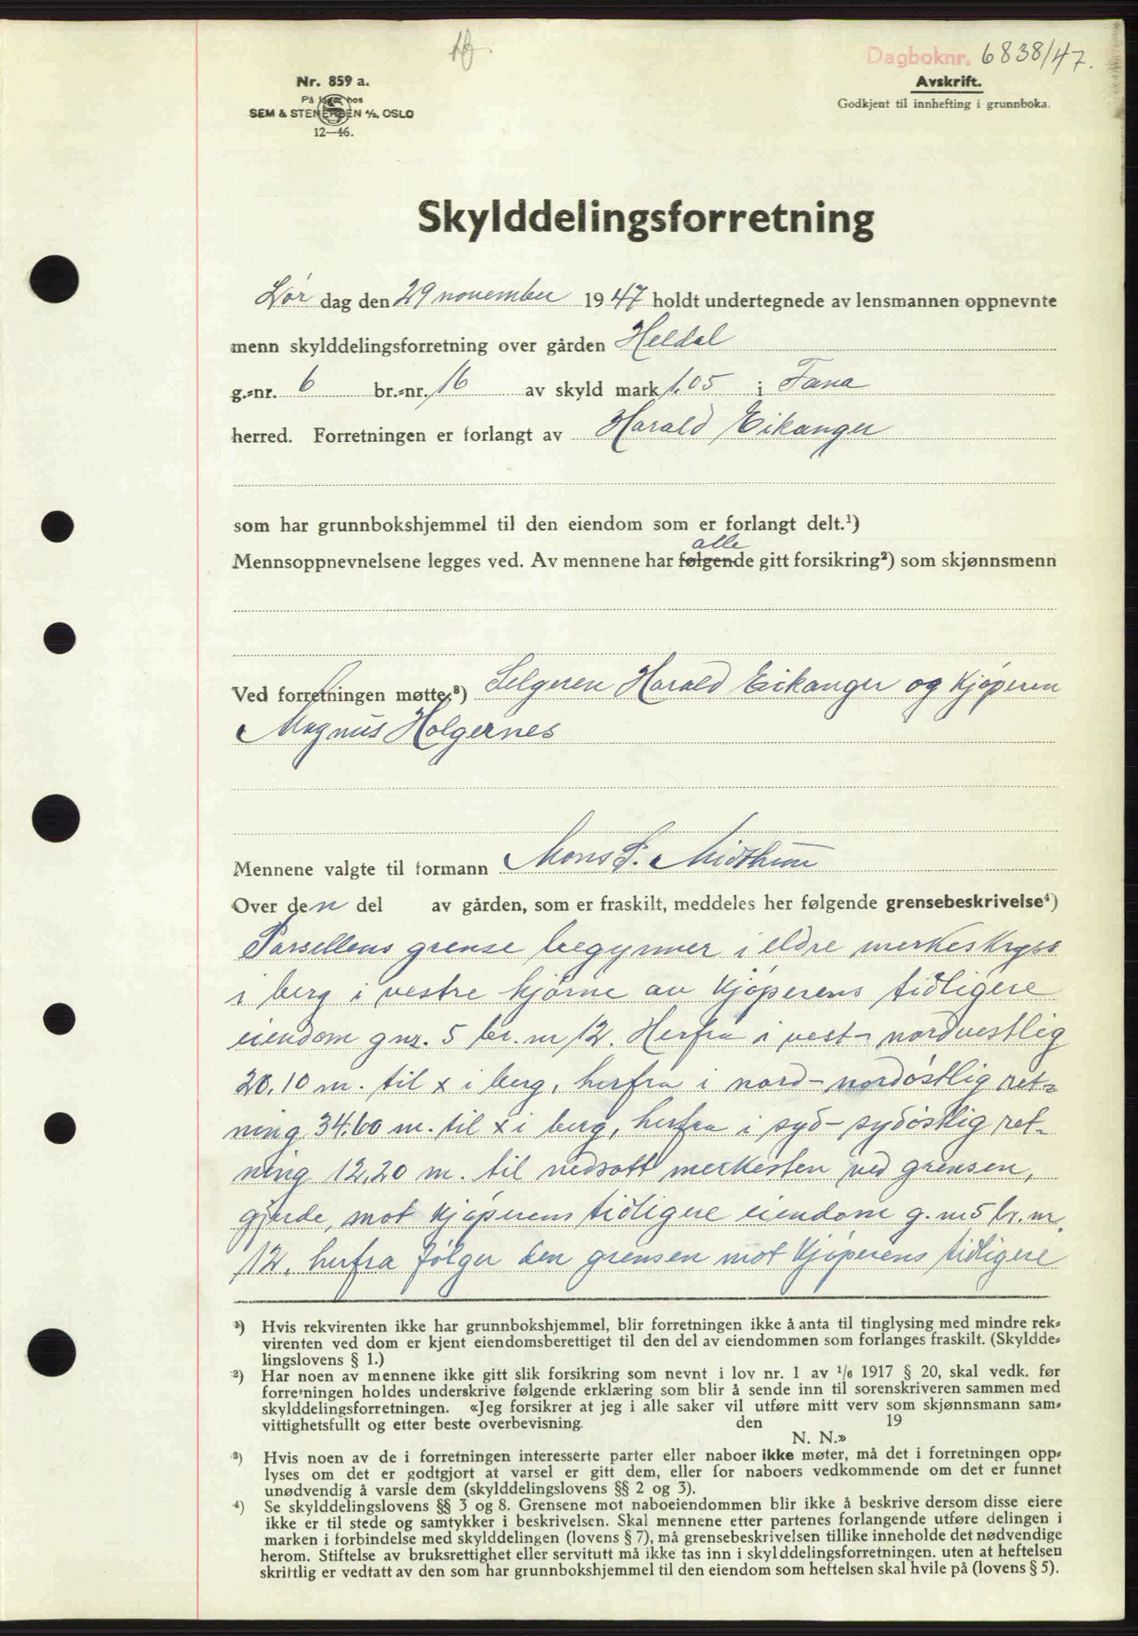 Dagboknr. 6838/47.
Nr. 859 a.
På lager hos
SEM & STENERSEN A/S, OSLO
12—46.
Avskrift.
Godkjent til innhefting i grunnboka.
Skylddelingsforretning
Lør dag den 29 november 1947 holdt undertegnede av lensmannen oppnevnte
menn skylddelingsforretning over gården Heldal
g.-nr. 6 br.-nr. 16 av skyld mark 1.05 i Fana
herred. Forretningen er forlangt av Harald Eikanger
som har grunnbokshjemmel til den eiendom som er forlangt delt.¹)
alle
Mennsoppnevnelsene legges ved. Av mennene har følgende gitt forsikring²) som skjønnsmenn
Ved forretningen møtte:³) Selgeren Harald Eikanger og kjøperen
Magnus Holgernes
Mennene valgte til formann Mons P. Midthun
Over den del av gården, som er fraskilt, meddeles her følgende grensebeskrivelse⁴)
Parsellens grense begynner i eldre merkeskryss
i berg i vestre hjørne av kjøperens tidligere
eiendom gnr. 5 br. nr 12. Herfra i vest-nordvestlig
20,10 m. til x i berg, herfra i nord-nordøstlig ret-
ning 34.60 m. til x i berg, herfra i syd-sydøstlig ret-
ning 12,20 m. til nedsatt merkesten ved grensen,
gjerde, mot kjøperens tidligere eiendom g.nr 5 br. nr.
12, herfra følger den grensen mot kjøperens tidligere
¹) Hvis rekvirenten ikke har grunnbokshjemmel, blir forretningen ikke å anta til tinglysing med mindre rek-
virenten ved dom er kjent eiendomsberettiget til den del av eiendommen som forlanges fraskilt. (Skyldde-
lingslovens § 1.)
²) Har noen av mennene ikke gitt slik forsikring som nevnt i lov nr. 1 av 1/6 1917 § 20, skal vedk. før
forretningen holdes underskrive følgende erklæring som blir å sende inn til sorenskriveren sammen med
skylddelingsforretningen. «Jeg forsikrer at jeg i alle saker vil utføre mitt verv som skjønnsmann sam-
vittighetsfullt og etter beste overbevisning. den 19
N. N.»
³) Hvis noen av de i forretningen interesserte parter eller naboer ikke møter, må det i forretningen opp-
lyses om det er godtgjort at varsel er gitt dem, eller for naboers vedkommende om det er funnet
unødvendig å varsle dem (skylddelingslovens §§ 2 og 3).
⁴) Se skylddelingslovens §§ 3 og 8. Grensene mot naboeiendommen blir ikke å beskrive dersom disse eiere
ikke er til stede og samtykker i beskrivelsen. Skal mennene etter partenes forlangende utføre delingen i
marken i forbindelse med skylddelingen (lovens § 7), må grensebeskrivelsen tillike inneholde det nødvendige
herom. Stiftelse av bruksrettighet eller servitutt må ikke tas inn i skylddelingsforretningen, uten at heftelsen
skriftlig er vedtatt av den som har grunnbokshjemmel til den eiendom som heftelsen skal hvile på (lovens § 5).